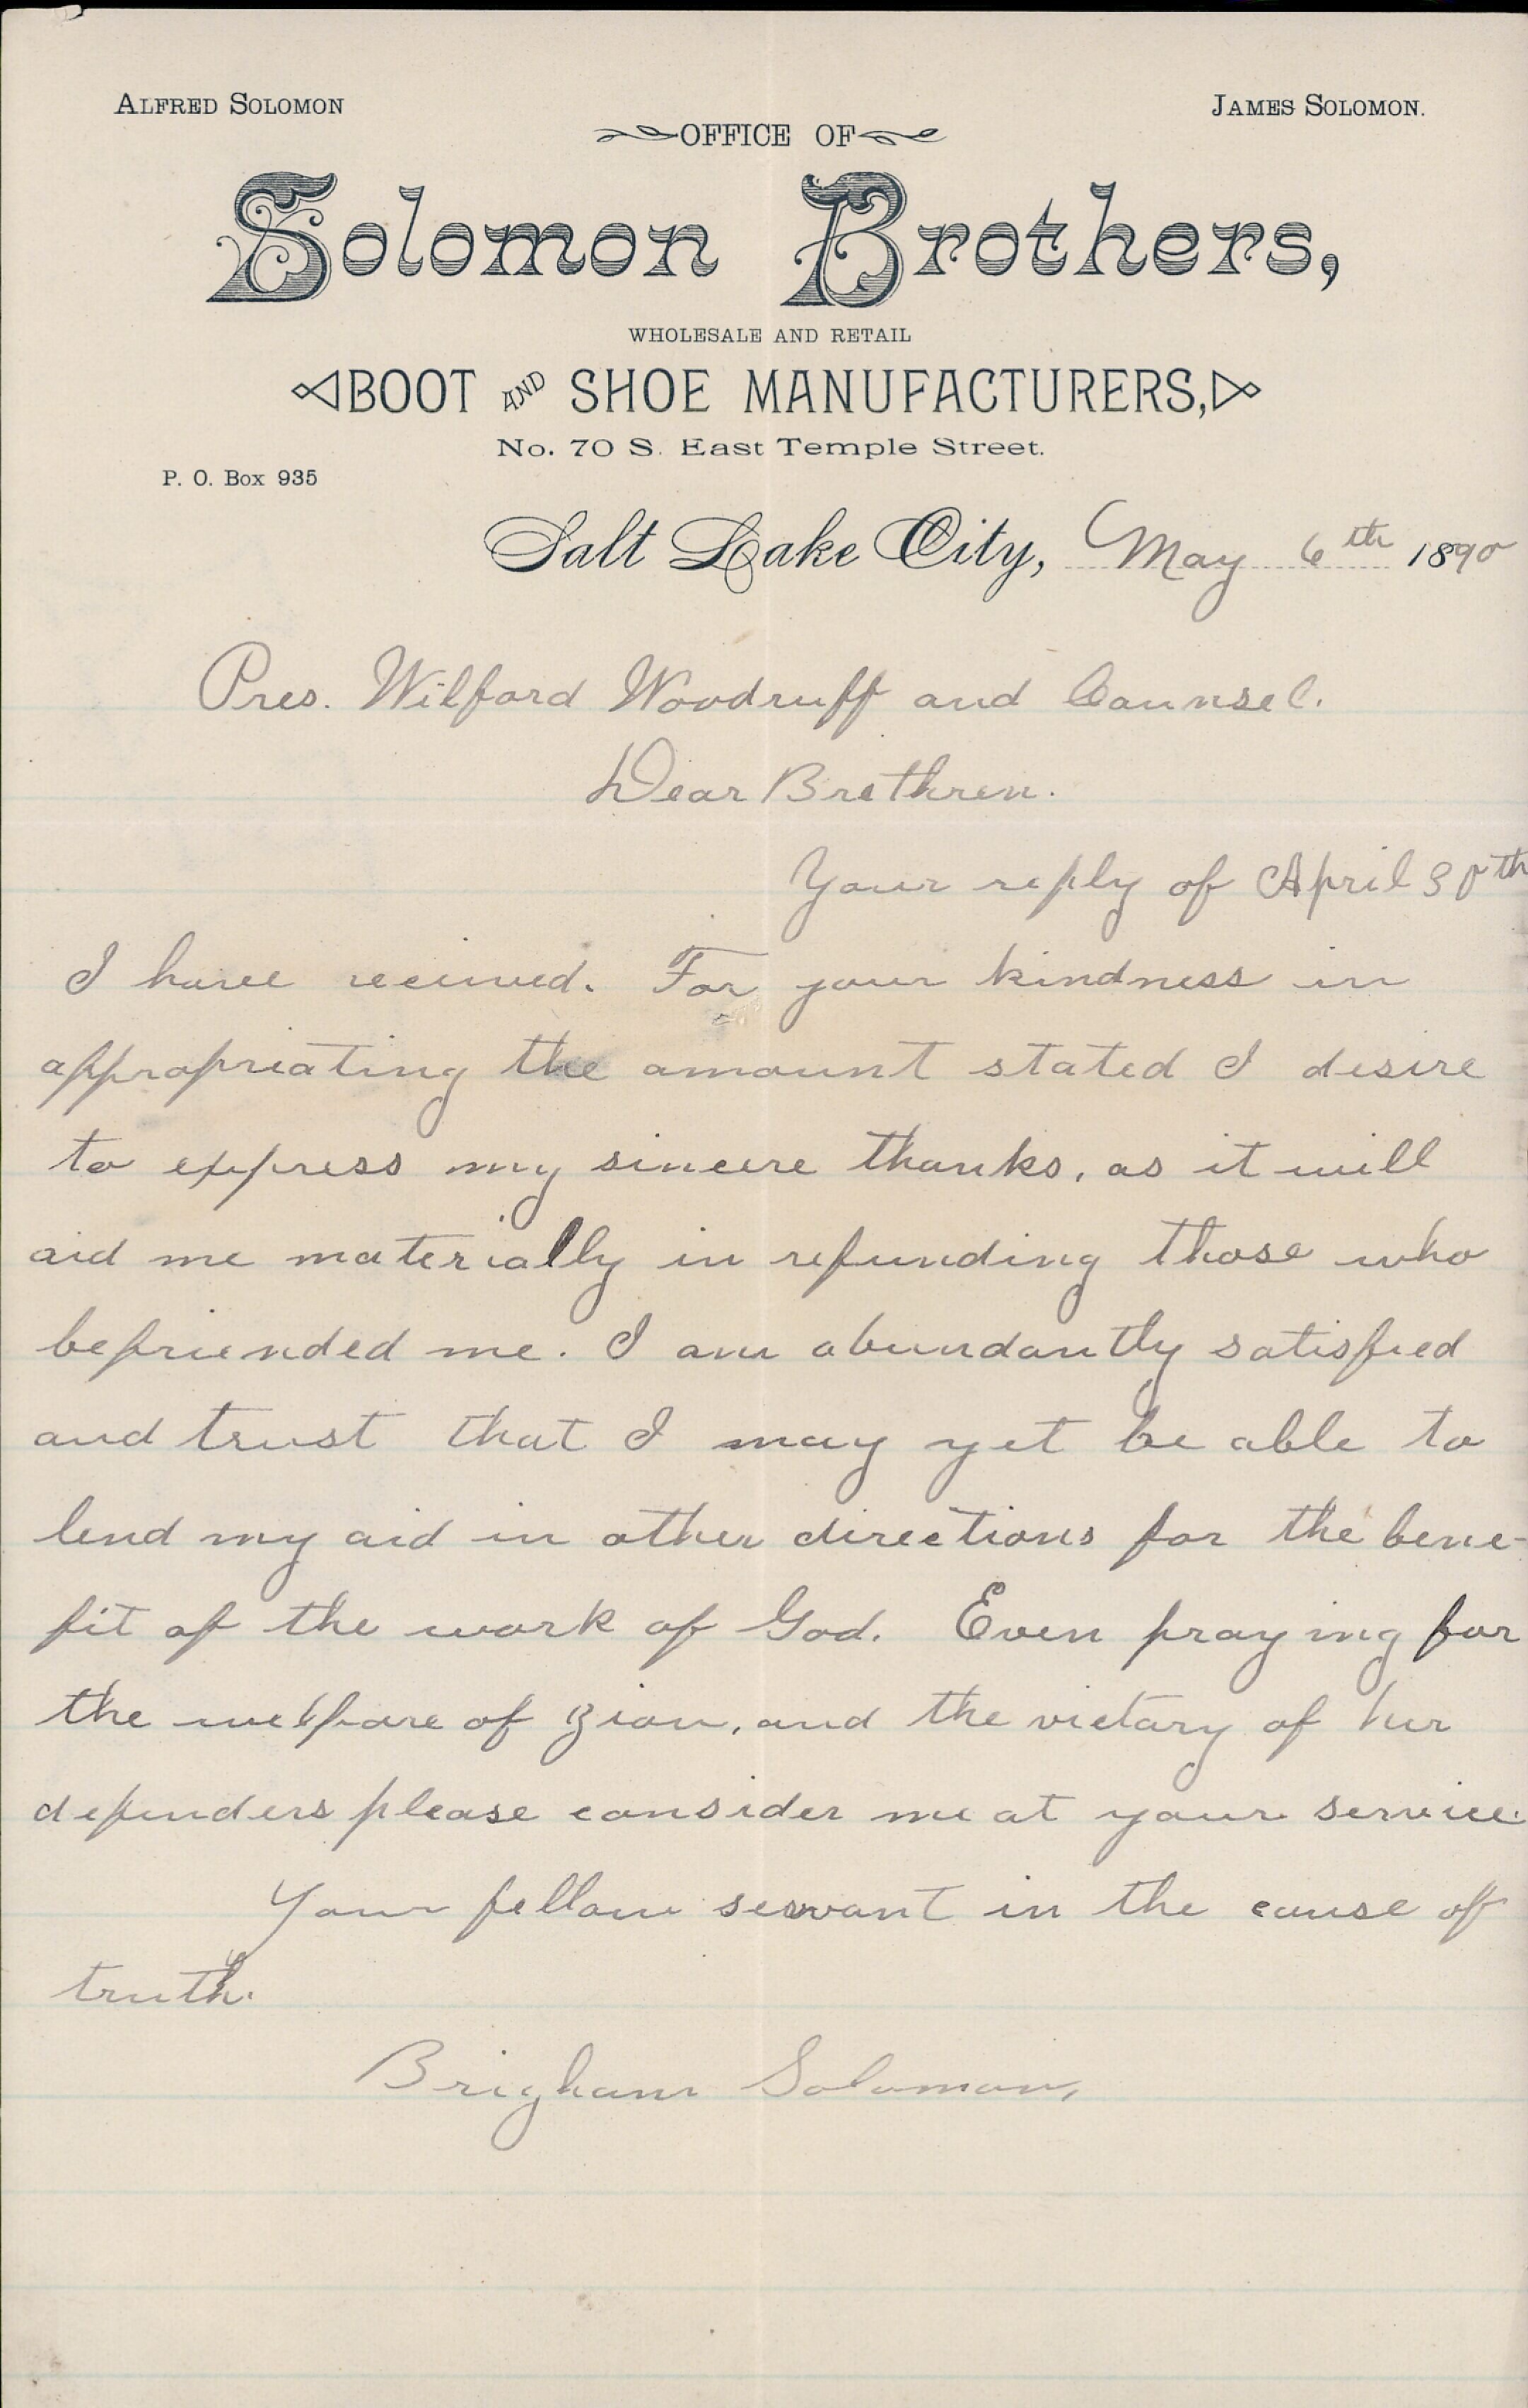 ALFRED SOLOMON
JAMES SOLOMON.
OFFICE OF
Solomon Brothers,
WHOLESALE AND RETAIL
BOOT AND SHOE MANUFACTURERS,
No. 70 S. East Temple Street.
P. O. Box 935
Salt Lake City, May 6th 1890
Pres. Wilford Woodruff and Counsel.
Dear Brethren.
Your reply of April 30th
I have received. For your kindness in
appropriating the amount stated I desire
to express my sincere thanks, as it will
aid me materially in refunding those who
befriended me. I am abundantly satisfied
and trust that I may yet be able to
lend my aid in other directions for the bene-
fit of the work of God. Even praying for
the welfare of Zion, and the victory of her
defenders please consider me at your service.
Your fellow servant in the cause of
truth.
Brigham Solomon,